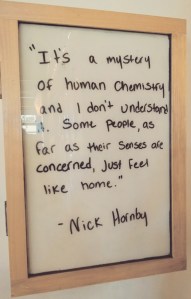 "It's a mystery
of human chemistry
and I don't understand
it. Some people, as
far as their senses are
concerned, just feel
like home."
- Nick Hornby